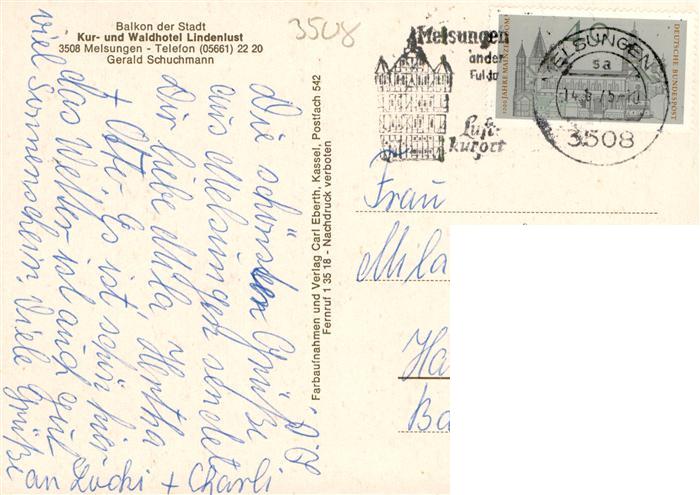 Balkon der Stadt
Kur- und Waldhotel Lindenlust
3508 Melsungen - Telefon (05661) 22 20
Gerald Schuchmann
3508
Die schönsten Grüße
aus Melsungen sendet
Dir liebe Mila, Hertha
+ Otto. Es ist schön hier
das Wetter ist auch gut
viel Sonnenschein. Viele Grüße
an Zucki + Charli
Farbaufnahmen und Verlag Carl Eberth, Kassel, Postfach 542
Fernruf 1 35 18 - Nachdruck verboten
Melsungen
an der
Fulda
Luft-
kurort
MELSUNGEN
sa
3508
40
DEUTSCHE BUNDESPOST
1000 JAHRE MAINZER DOM
Frau
Mila
Ha
Ba